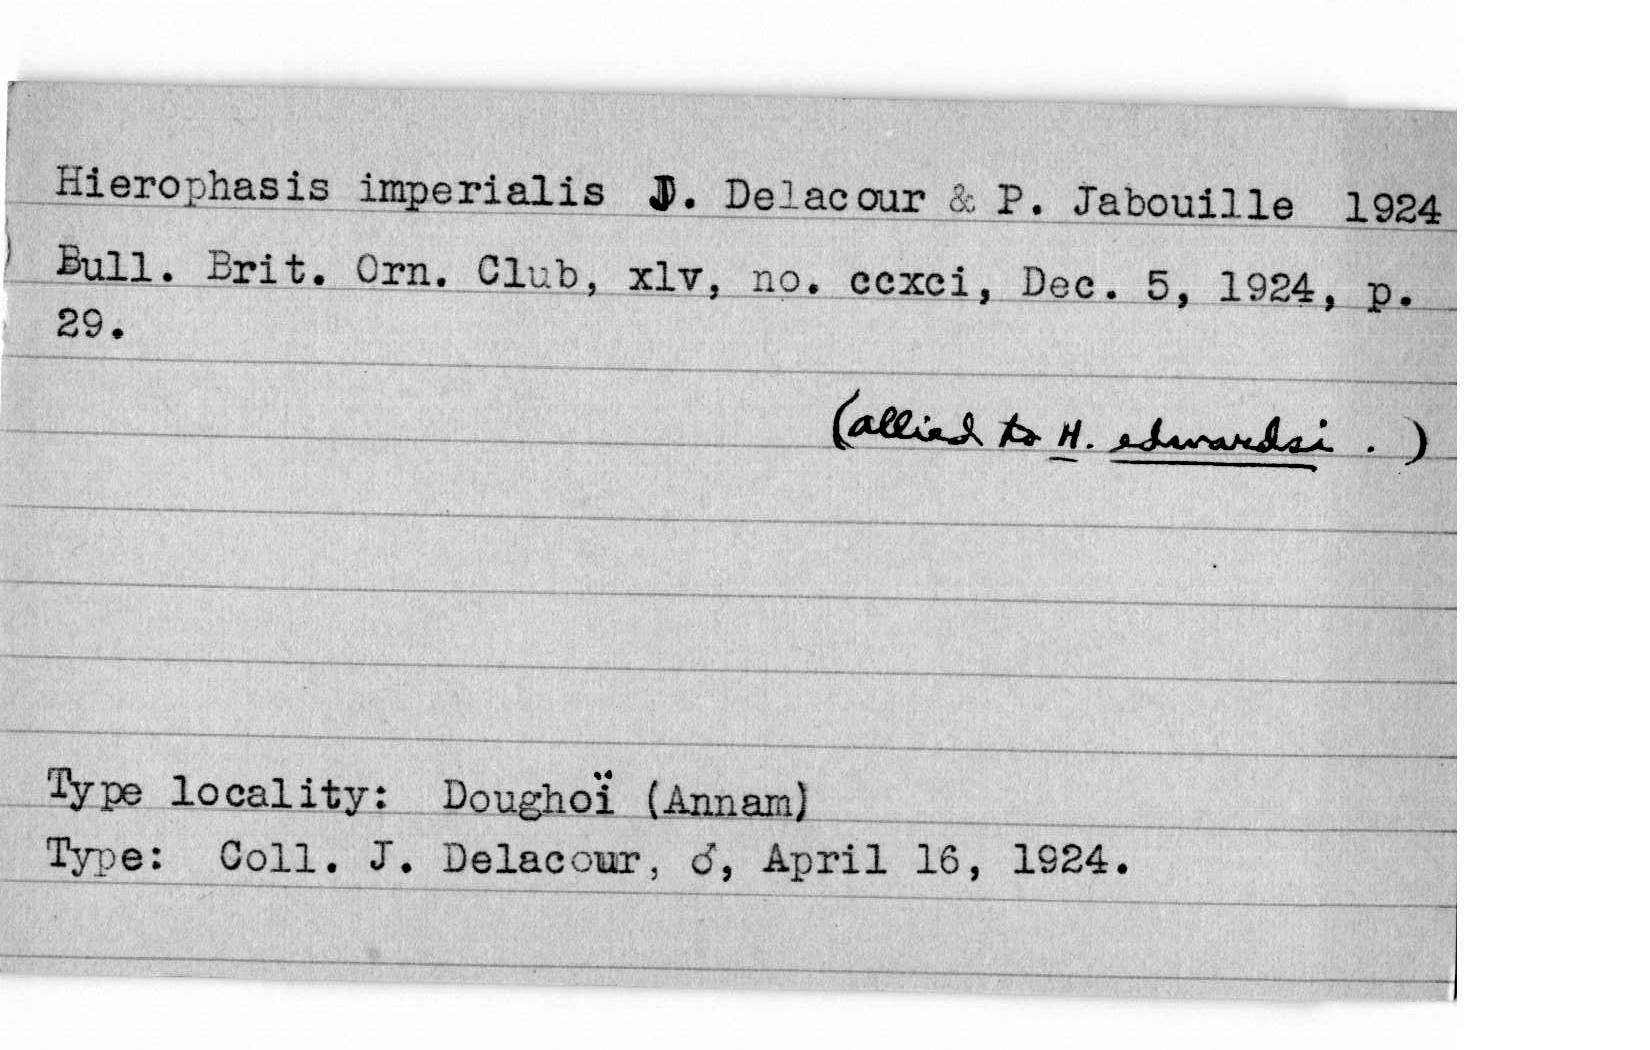 Hierophasis imperialis J. Delacour & P. Jabouille 1924
Bull. Brit. Orn. Club, xlv, no. ccxci, Dec. 5, 1924, p.
29.
(allied to H. edwardsi . )
Type locality: Doughoï (Annam)
Type: Coll. J. Delacour, ♂, April 16, 1924.